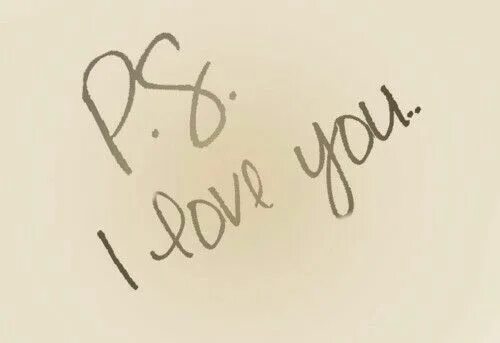 P.S.
I love you..